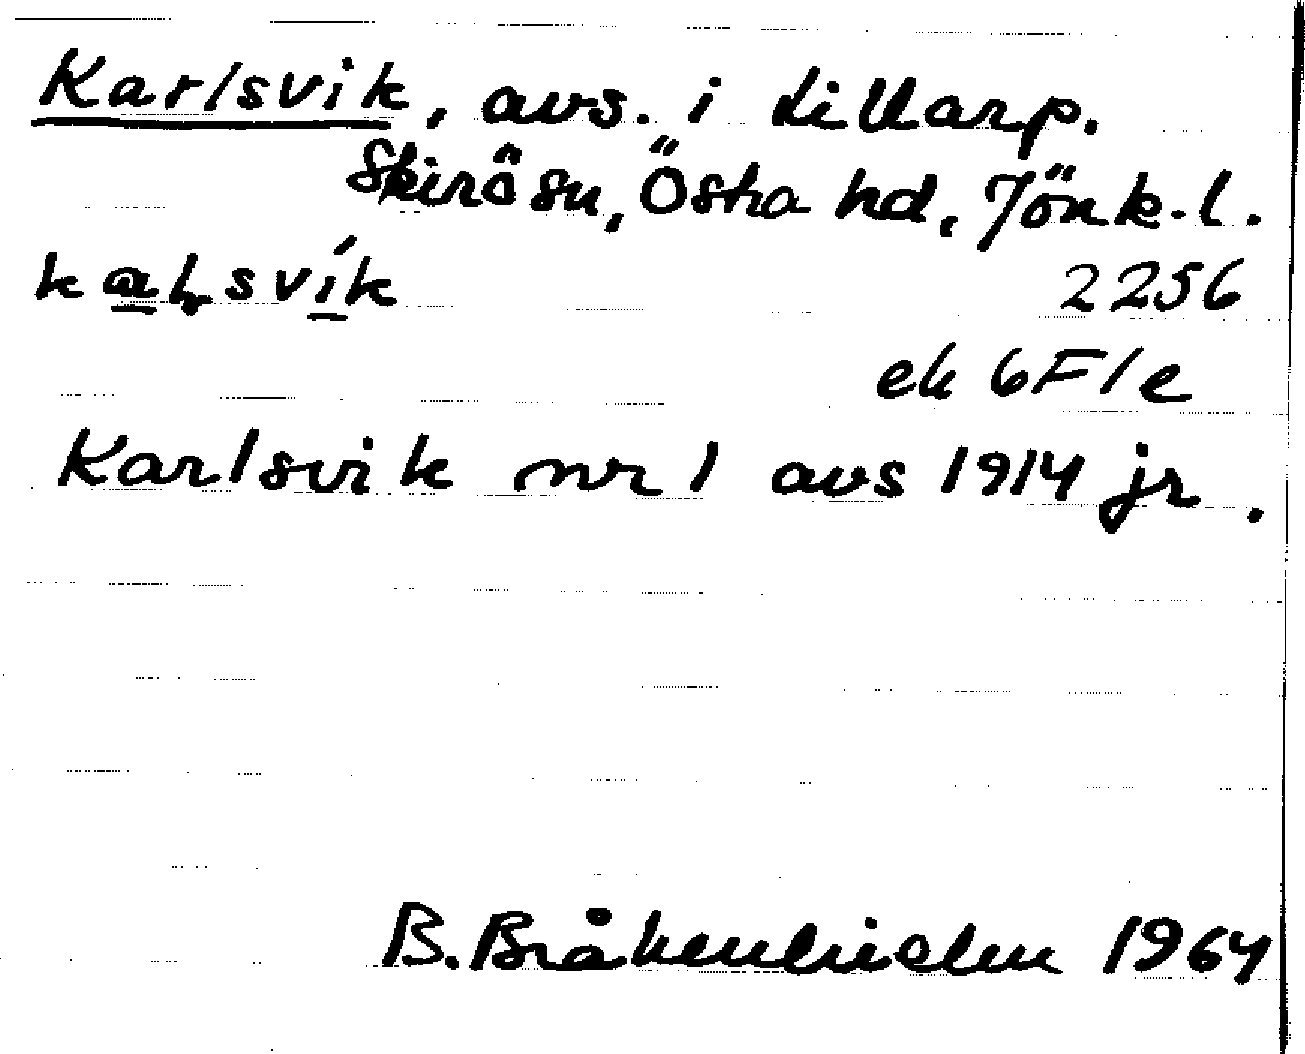 Karlsvik, avs. i Lillarp.
Skirö sn, Östra hd, Jönk.l.
kaḷsvík
2256
ek 6F1e
Karlsvik nr 1 avs 1914 jr.
B. Bråkenhielm 1964